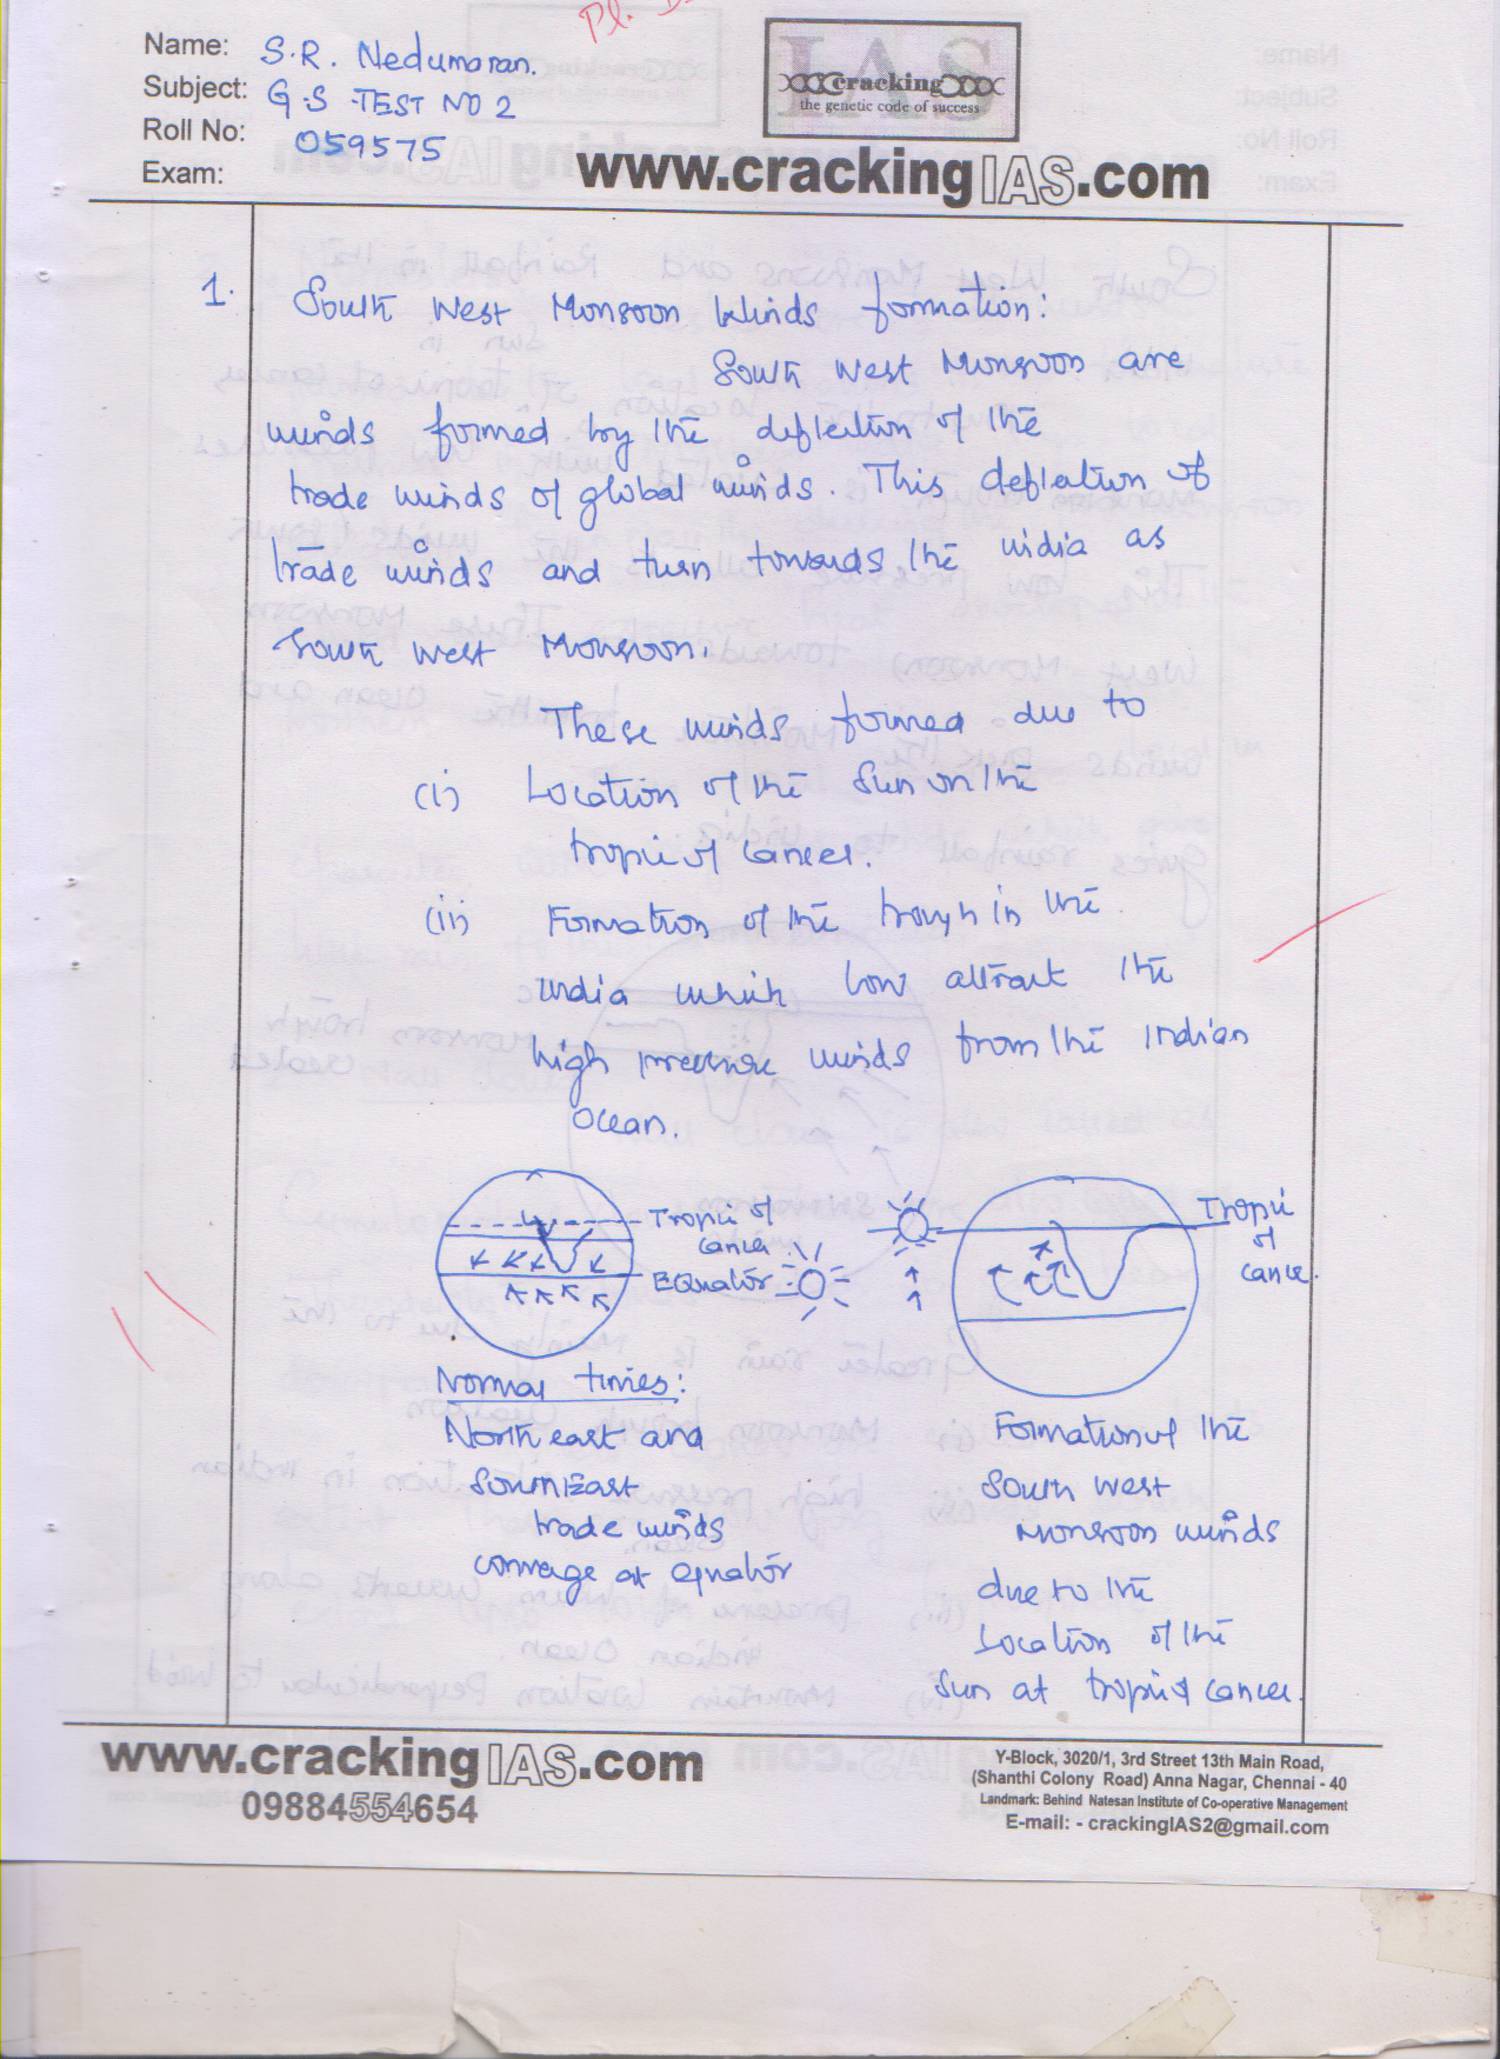 Pl.
Name: S.R. Nedumaran.
Subject: G.S TEST NO 2
Roll No: 059575
Exam:
IAS
cracking
the genetic code of success
www.crackingIAS.com
1. South West Monsoon Winds formation:
South West Monsoon are
winds formed by the deflection of the
trade winds of global winds. This deflation of
trade winds and turn towards the india as
South West Monsoon.
These winds formed due to
(i) Location of the Sun on the
tropic of cancer.
(ii) Formation of the trough in the
india which low attract the
high pressure winds from the Indian
Ocean.
Tropic of
cancer
Equator
Tropic
of
cancer.
Normal times:
North east and
South East
trade winds
converge at equator
Formation of the
South West
Monsoon winds
due to the
Location of the
Sun at tropic of cancer.
www.crackingIAS.com
09884554654
Y-Block, 3020/1, 3rd Street 13th Main Road,
(Shanthi Colony Road) Anna Nagar, Chennai - 40
Landmark: Behind Natesan Institute of Co-operative Management
E-mail: - crackingIAS2@gmail.com